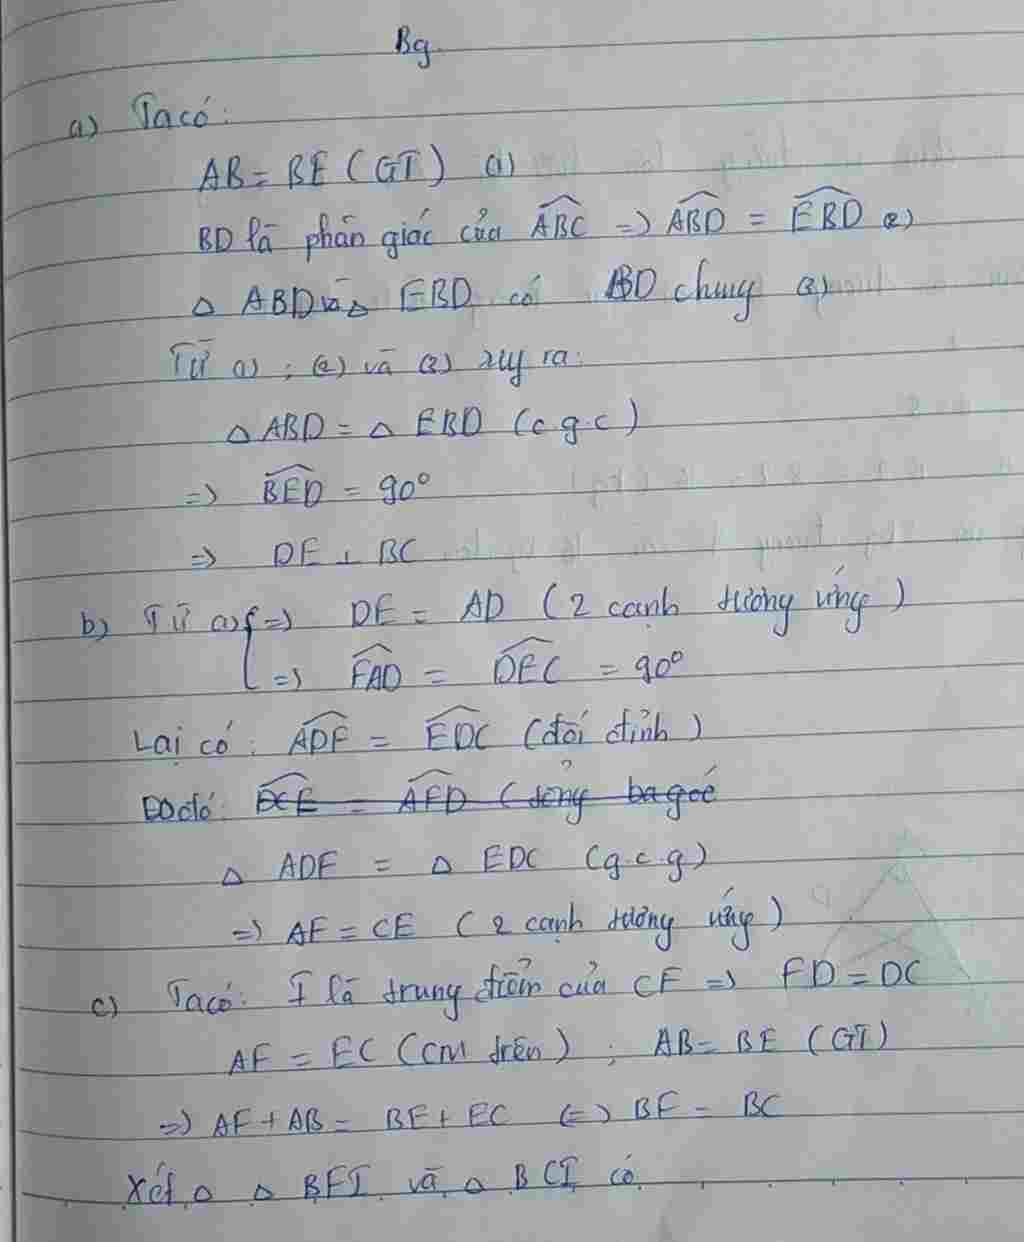 Bg
a) Ta có:
AB = BE (GT) (1)
BD là phân giác của \widehat{ABC} => \widehat{ABD} = \widehat{EBD} (2)
△ ABD và △ EBD có BD chung (3)
Từ (1) ; (2) và (3) suy ra:
△ ABD = △ EBD (c.g.c)
=> \widehat{BED} = 90°
=> DE ⊥ BC
b) Từ a) { => DE = AD (2 cạnh tương ứng)
=> \widehat{FAD} = \widehat{DEC} = 90°
Lại có: \widehat{ADF} = \widehat{EDC} (đối đỉnh)
Do đó: \widehat{DCE} = \widehat{AFD} (tổng ba góc
△ ADF = △ EDC (g.c.g)
=> AF = CE (2 cạnh tương ứng)
c) Ta có: I là trung điểm của CF => FD = DC
AF = EC (cm trên) ; AB = BE (GT)
=> AF + AB = BE + EC <=> BF = BC
Xét △ △ BFI và △ BCI có